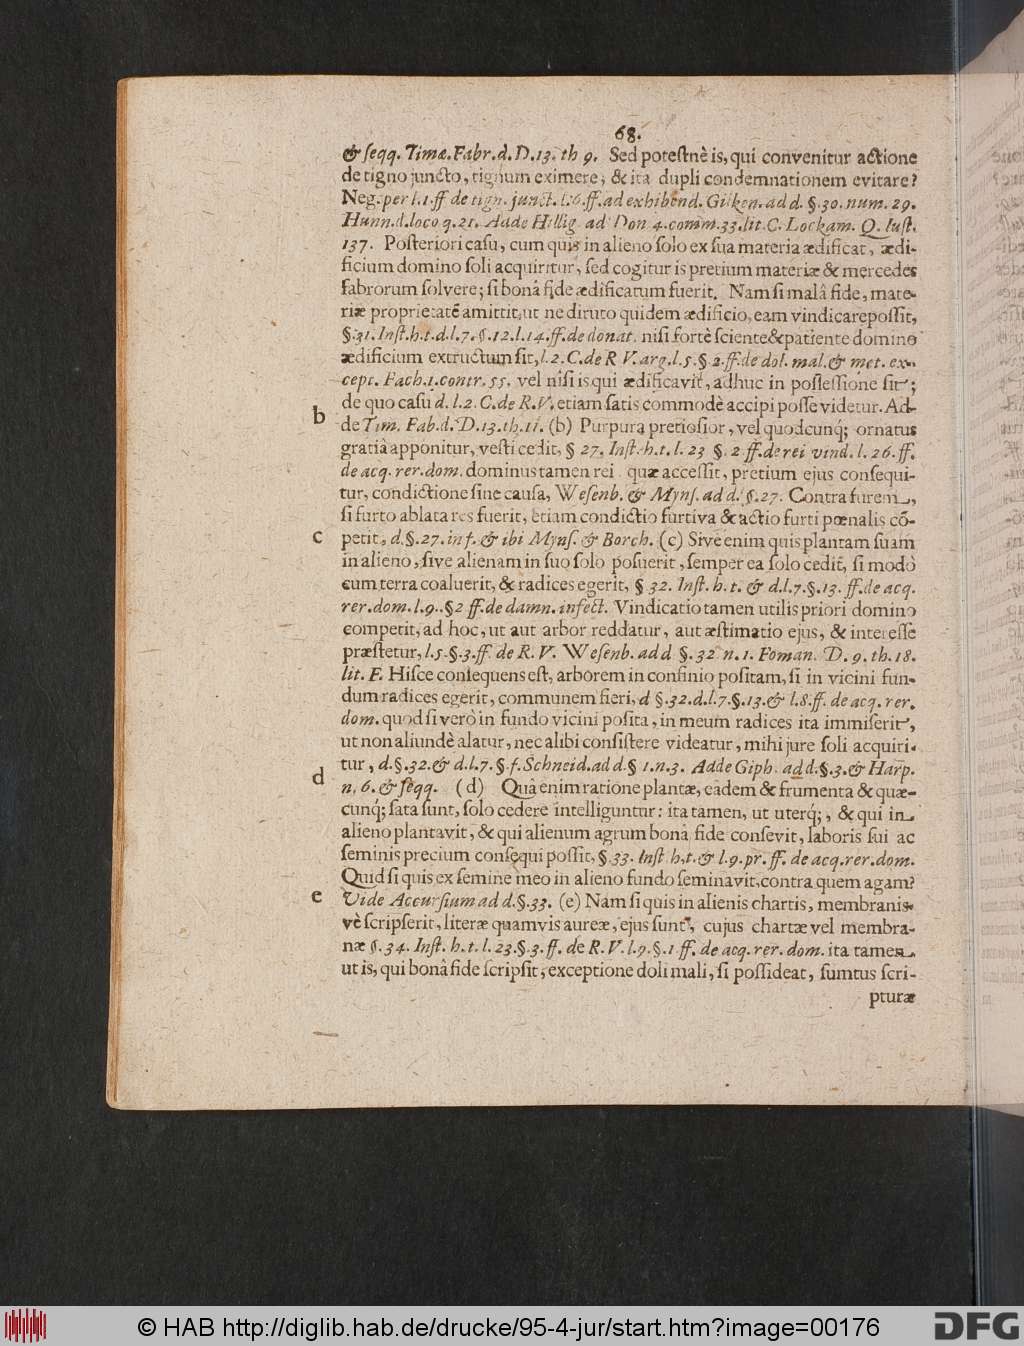 68.
& seqq. Timæ. Fabr. d. D. 13. th 9. Sed potestnè is, qui convenitur actione
de tigno juncto, tignum eximere; & ita dupli condemnationem evitare?
Neg. per l. 1. ff de tign. junct. l. 6. ff. ad exhibend. Gilken. ad d. §. 30. num. 29.
Hunn. d. loco q. 21. Adde Hillig ad Don 4. comm. 33. lit. C. Lockam. Q. Iust.
137. Posteriori casu, cum quis in alieno solo ex sua materia ædificat, ædi-
ficium domino soli acquiritur, sed cogitur is pretium materiæ & mercedes
fabrorum solvere; si bonâ fide ædificatum fuerit. Nam si malâ fide, mate-
riæ proprietatē amittit, ut ne diruto quidem ædificio, eam vindicare possit,
§. 31. Inst. h. t. d. l. 7. §. 12. l. 14. ff. de donat. nisi fortè sciente & patiente domino
ædificium extructum sit, l. 2. C. de R V. arg. l. 5. §. 2. ff. de dol. mal. & met. ex-
cept. Fach. 1. contr. 55. vel nisi is qui ædificavit, adhuc in possessione sit;
de quo casu d. l. 2. C. de R. V. etiam satis commodè accipi posse videtur. Ad-
b de Tim. Fab. d. D. 13. th. 11. (b) Purpura pretiosior, vel quodcunq; ornatus
gratiâ apponitur, vesti cedit, § 27. Inst. h. t. l. 23 §. 2 ff. de rei vind. l. 26. ff.
de acq. rer. dom. dominus tamen rei quæ accessit, pretium ejus consequi-
tur, condictione sine causa, Wesenb. & Myns. ad d. §. 27. Contra furem,
si furto ablata res fuerit, etiam condictio furtiva & actio furti pœnalis cō-
c petit, d. §. 27. inf. & ibi Myns. & Borch. (c) Sive enim quis plantam suam
in alieno, sive alienam in suo solo posuerit, semper ea solo cedit, si modò
cum terra coaluerit, & radices egerit, § 32. Inst. h. t. & d. l. 7. §. 13. ff. de acq.
rer. dom. l. 9. §2 ff. de damn. infect. Vindicatio tamen utilis priori domino
competit, ad hoc, ut aut arbor reddatur, aut æstimatio ejus, & interesse
præstetur, l. 5. §. 3. ff. de R. V. Wesenb. ad d §. 32 n. 1. Foman. D. 9. th. 18.
lit. F. Hisce consequens est, arborem in confinio positam, si in vicini fun-
dum radices egerit, communem fieri, d §. 32. d. l. 7. §. 13. & l. 8. ff. de acq. rer.
dom. quod si verò in fundo vicini posita, in meum radices ita immiserit,
ut non aliundè alatur, nec alibi consistere videatur, mihi jure soli acquiri-
tur, d. §. 32. & d. l. 7. §. f. Schneid. ad d. § 1. n. 3. Adde Giph. ad d. §. 3. & Harp.
d n. 6. & seqq. (d) Quâ enim ratione plantæ, eâdem & frumenta & quæ-
cunq; sata sunt, solo cedere intelliguntur: ita tamen, ut uterq;, & qui in
alieno plantavit, & qui alienum agrum bonâ fide consevit, laboris sui ac
seminis precium consequi possit, §. 33. Inst h. t. & l. 9. pr. ff. de acq. rer. dom.
Quid si quis ex semine meo in alieno fundo seminavit, contra quem agam?
e Vide Accursium ad d. §. 33. (e) Nam si quis in alienis chartis, membranis-
vè scripserit, literæ quamvis aureæ, ejus sunt, cujus chartæ vel membra-
næ §. 34. Inst. h. t. l. 23. §. 3. ff. de R. V. l. 9. §. 1 ff. de acq. rer. dom. ita tamen
ut is, qui bonâ fide scripsit, exceptione doli mali, si possideat, sumtus scri-
pturæ
© HAB http://diglib.hab.de/drucke/95-4-jur/start.htm?image=00176
DFG